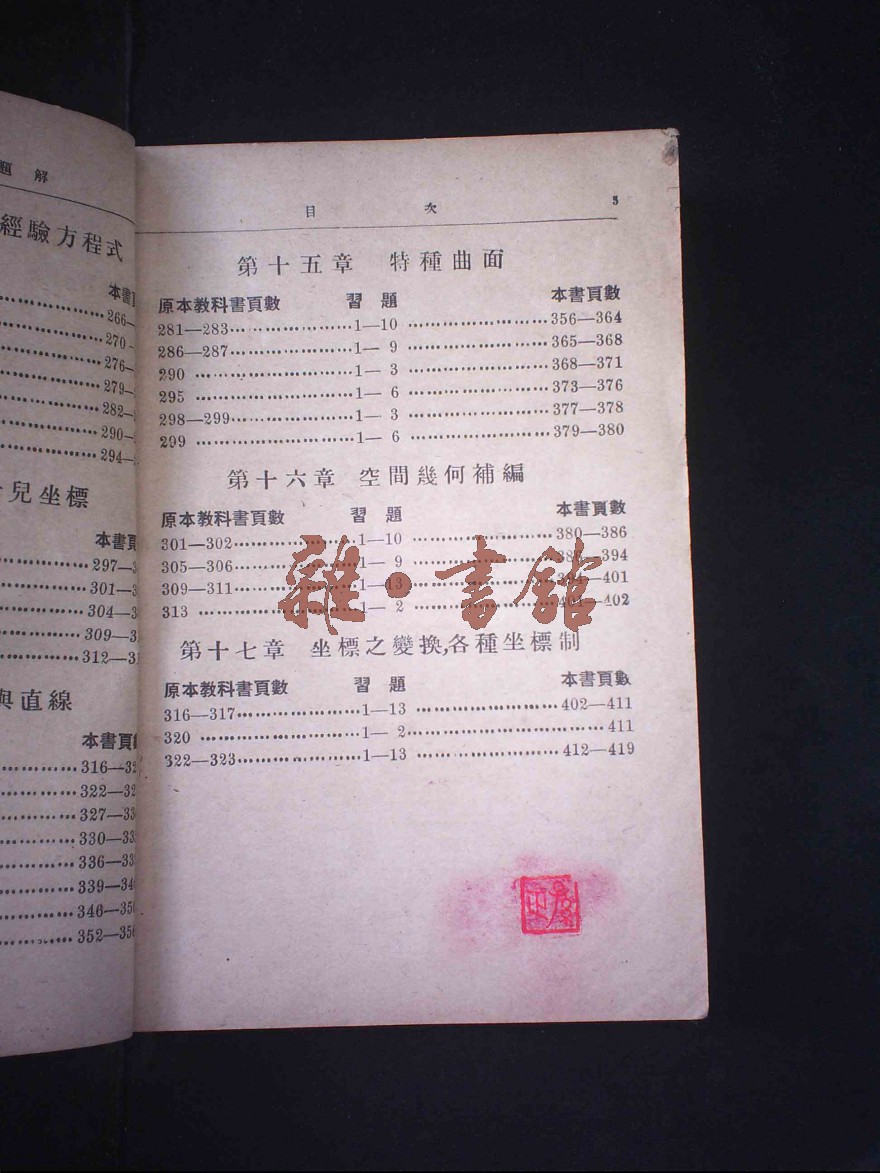 題 解
經驗方程式
本書頁
266—
270—
276—
279—
282—
290—
294—
兒坐標
本書頁
297—3
301—3
304—3
309—31
312—31
與直線
本書頁
316—32
322—32
327—33
330—33
336—33
339—34
346—35
352—356
目 次 3
第十五章 特種曲面
原本教科書頁數 習題 本書頁數
281—283…………………1—10…………………356—364
286—287…………………1— 9…………………365—368
290…………………1— 3…………………368—371
295…………………1— 6…………………373—376
298—299…………………1— 3…………………377—378
299…………………1— 6…………………379—380
第十六章 空間幾何補編
原本教科書頁數 習題 本書頁數
301—302…………………1—10…………………380—386
305—306…………………1— 9…………………386—394
309—311…………………1—13…………………394—401
313…………………1— 2…………………401—402
雜·書館
第十七章 坐標之變換,各種坐標制
原本教科書頁數 習題 本書頁數
316—317…………………1—13…………………402—411
320…………………1— 2…………………411
322—323…………………1—13…………………412—419